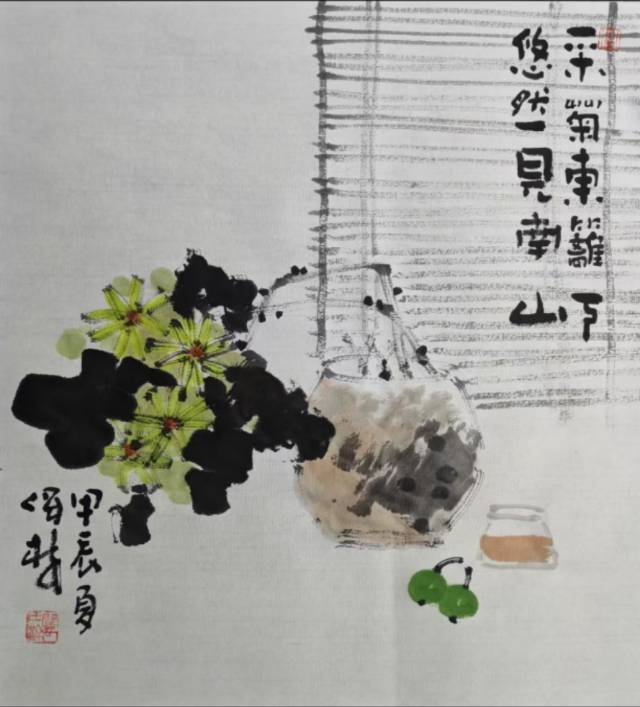 采菊東籬下
悠然見南山
甲辰夏